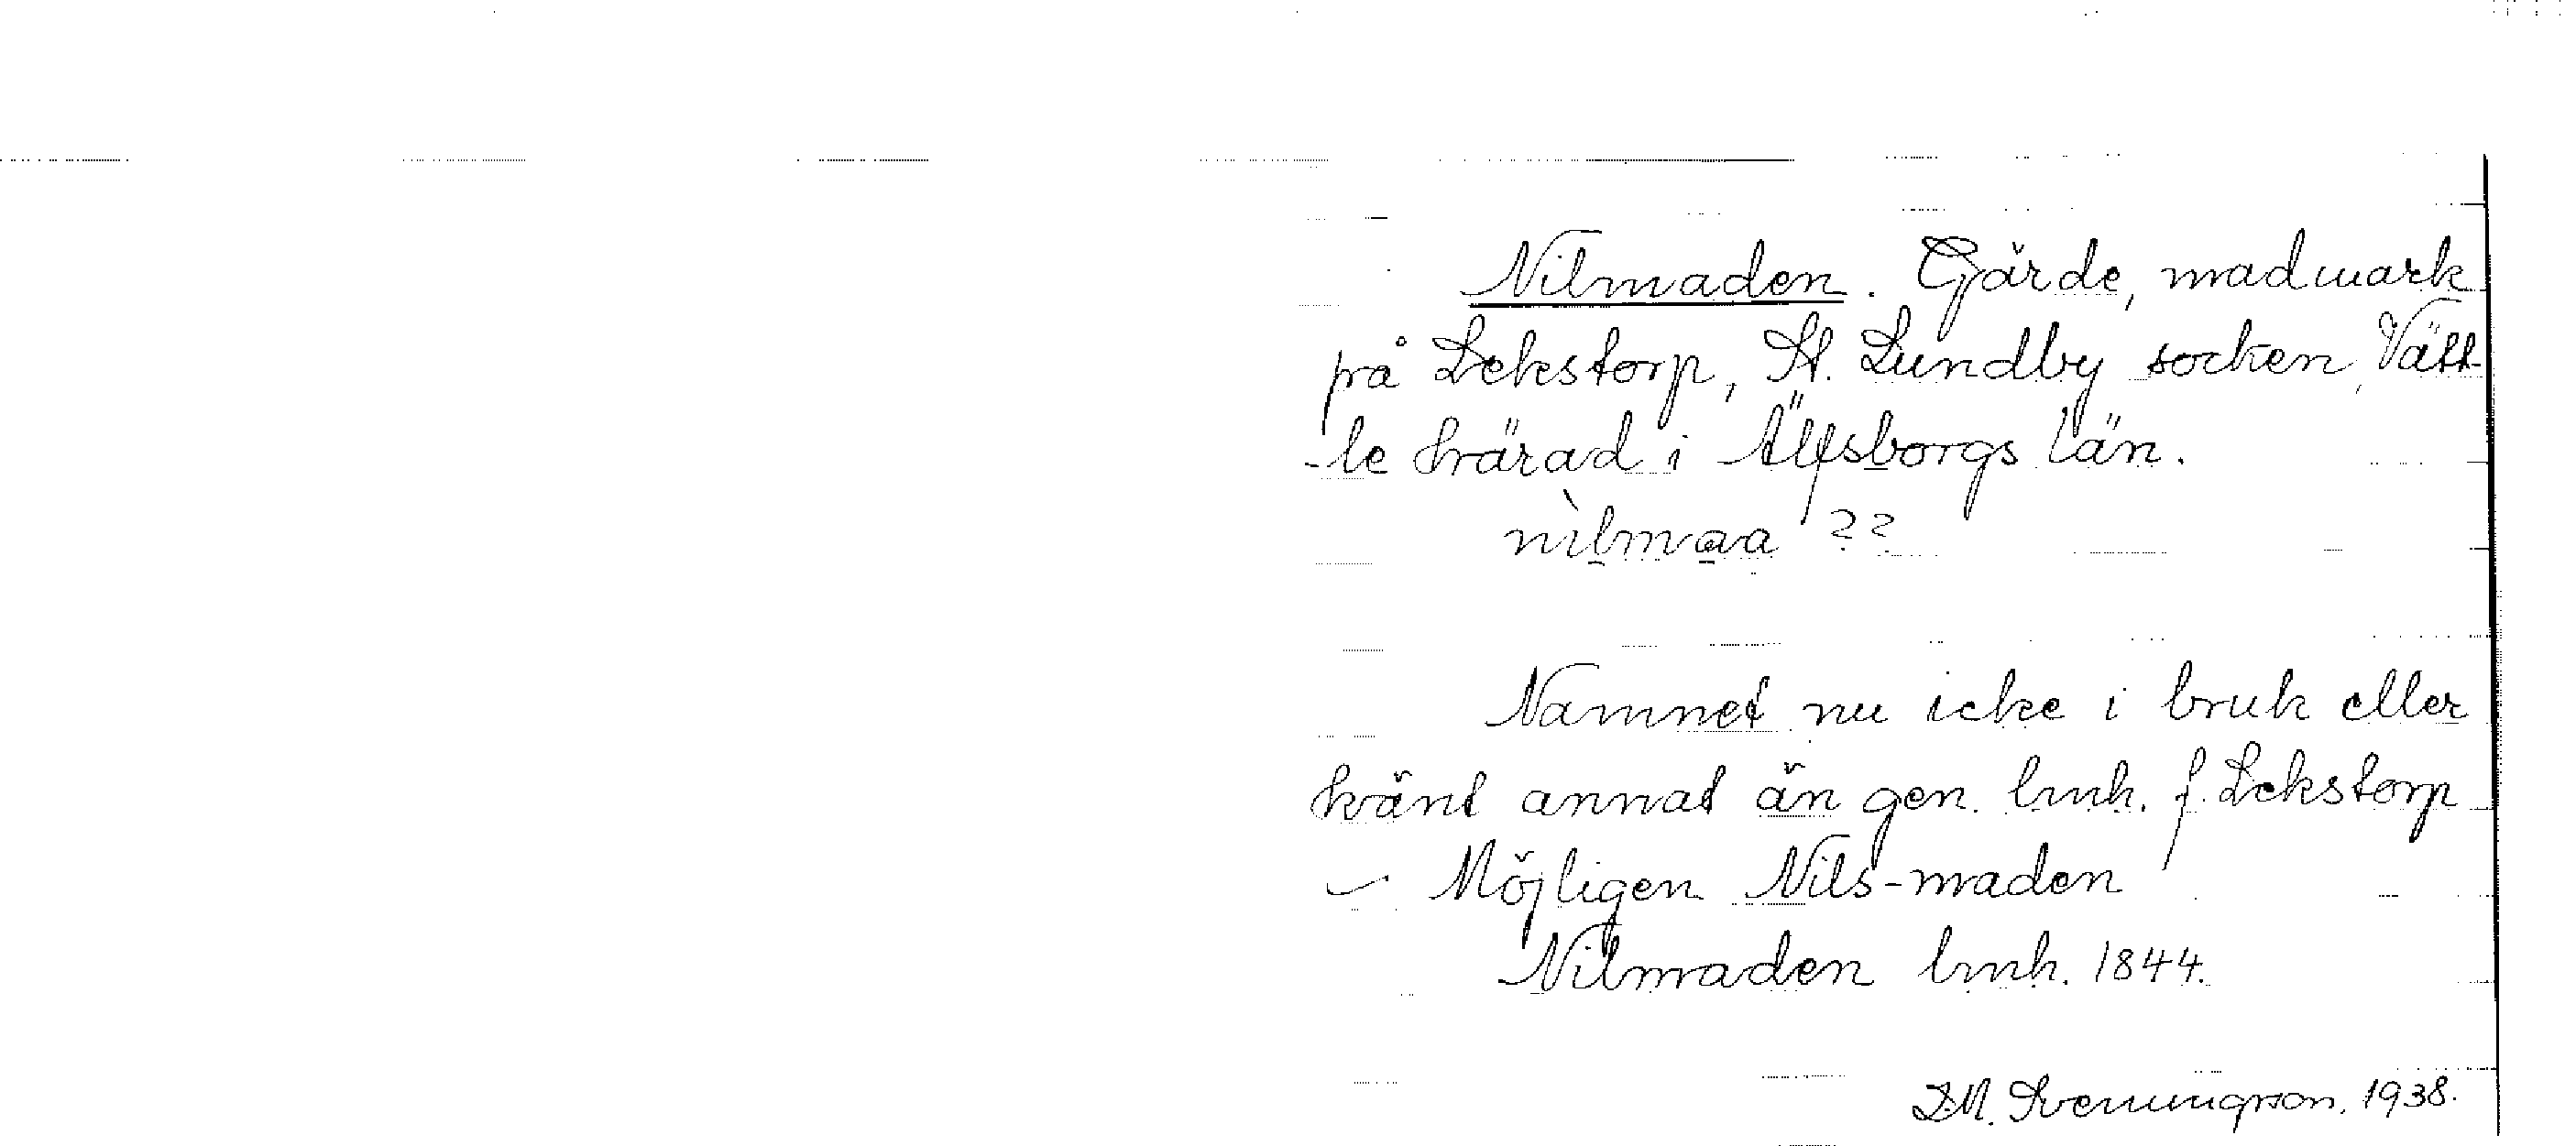 Nilmaden. Gärde, madmark
på Lekstorp, St. Lundby socken, Vätt-
-le härad i Älfsborgs län.
nìlmaa ??
Namnet nu icke i bruk eller
känt annat än gen. lmh. f. Lekstorp
– Möjligen Nils-maden
Nilmaden lmh. 1844.
D.M. Svenungsson, 1938.